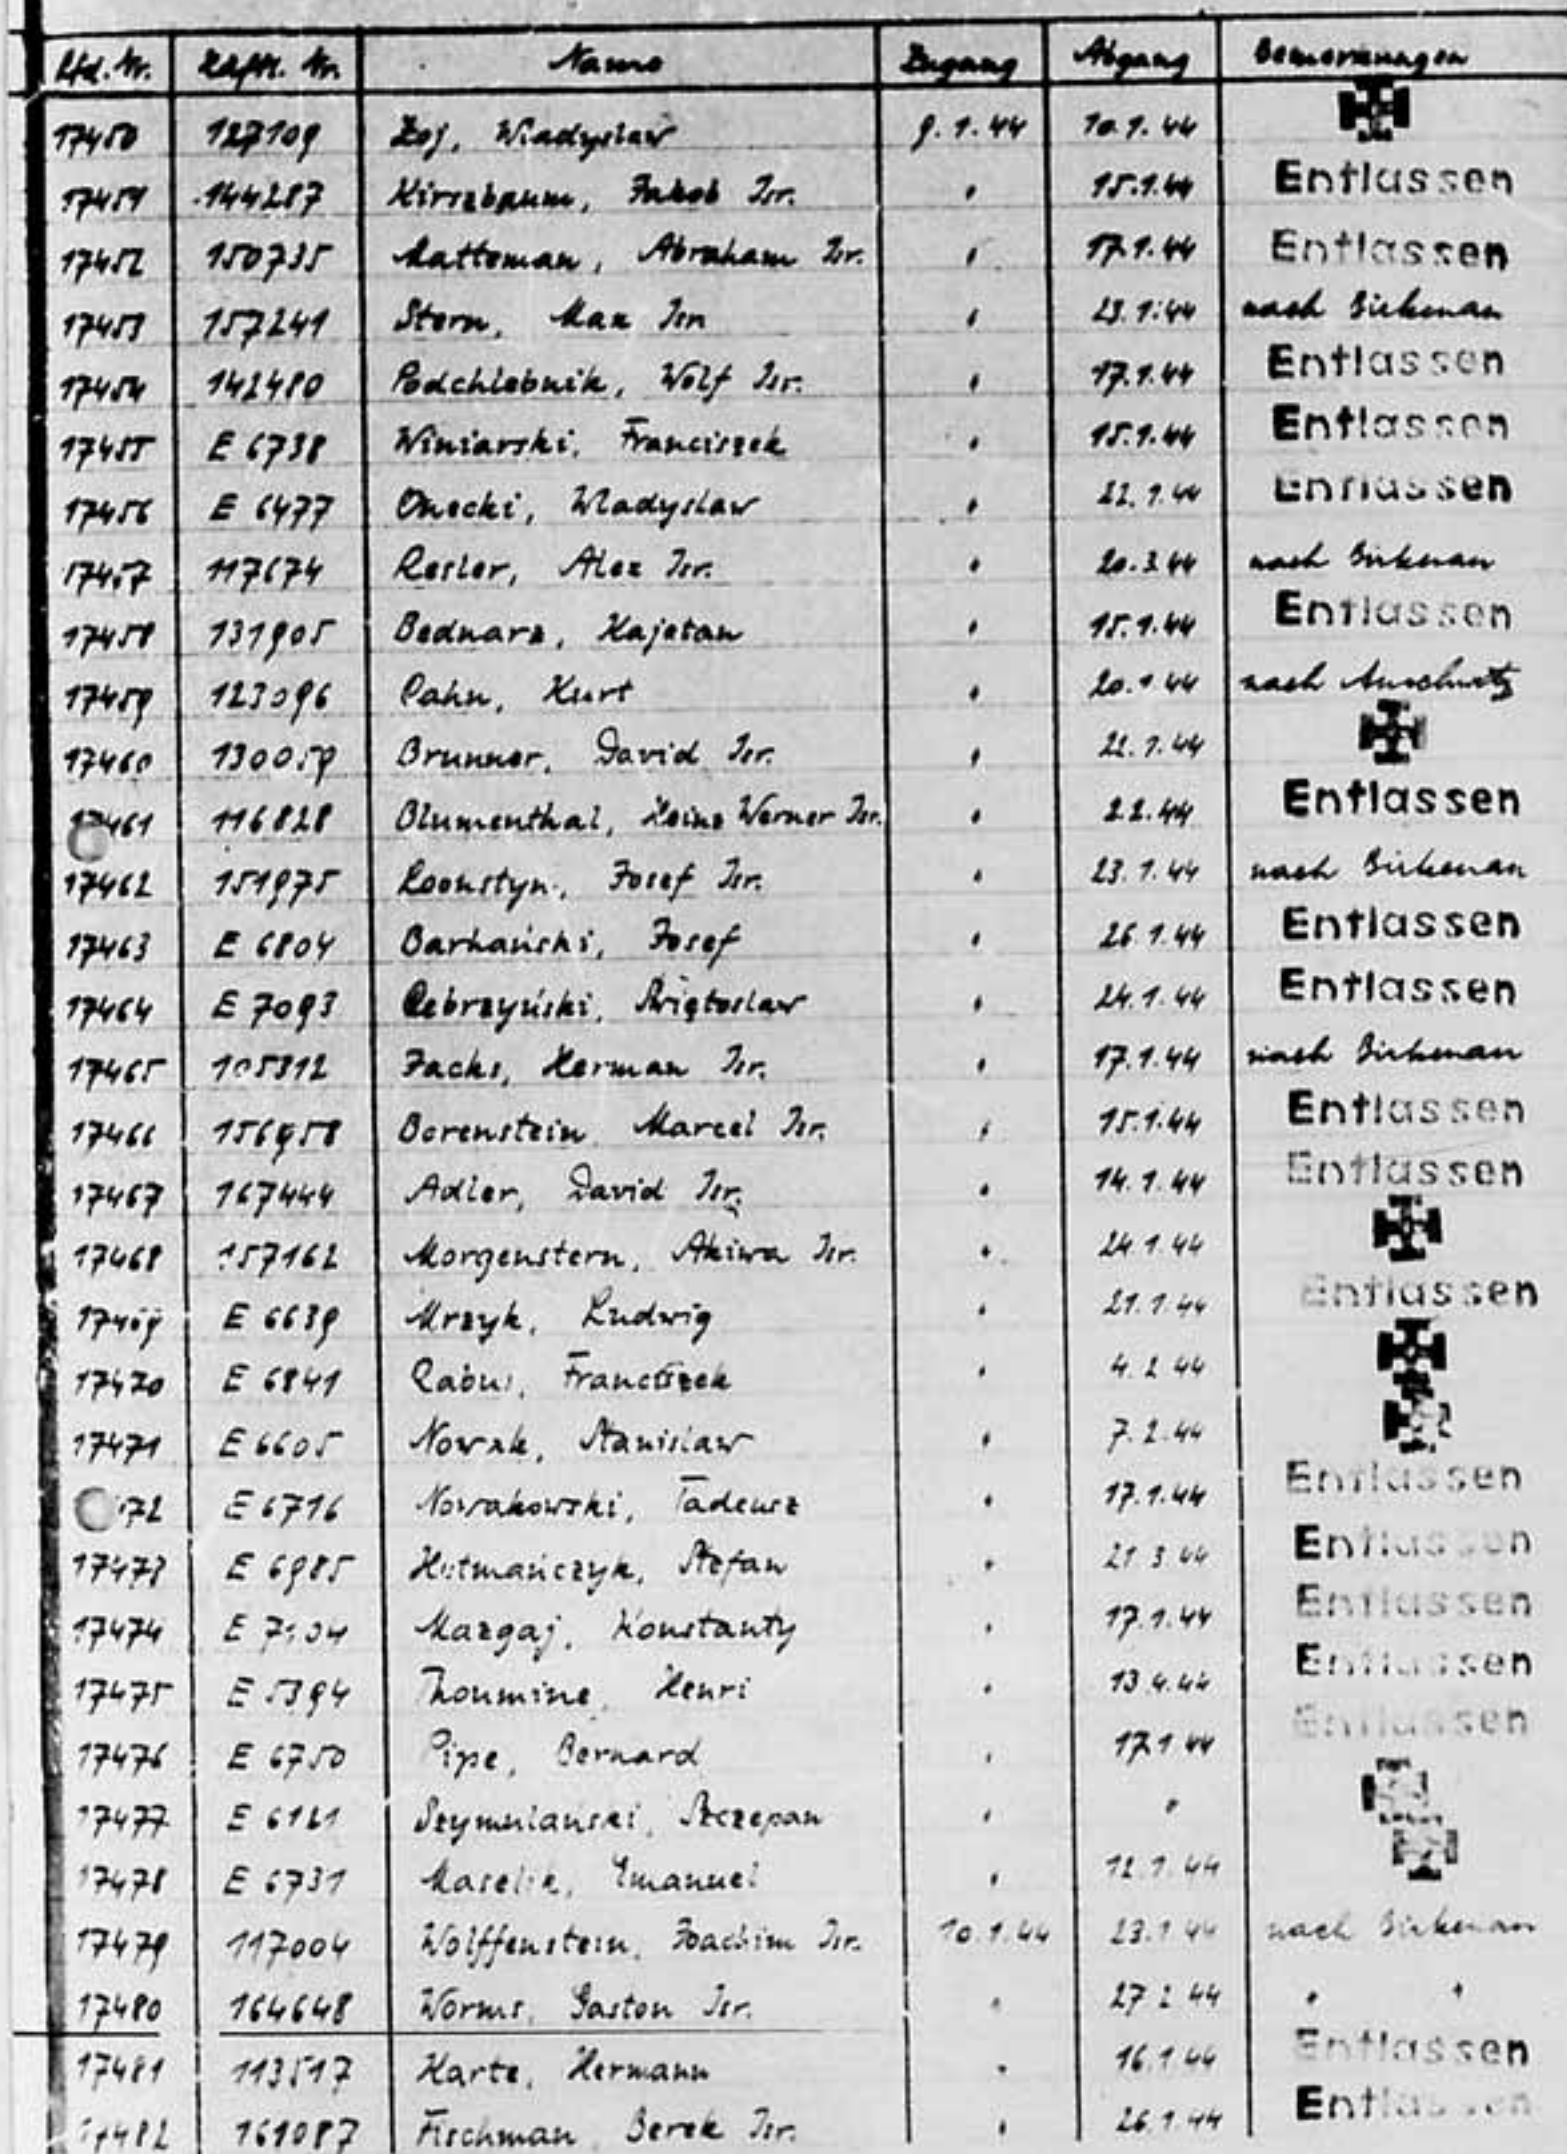 Lfd. Nr. Häftl. Nr. Name Zugang Abgang Bemerkungen
17450 127109 Zoj, Wladyslaw 9.1.44 10.1.44
17451 144287 Kirszbaum, Jakob Isr. " 15.1.44 Entlassen
17452 150735 Mattoman, Abraham Isr. " 17.1.44 Entlassen
17453 157241 Stern, Max Isr. " 23.1.44 nach Birkenau
17454 142480 Podchlebnik, Wolf Isr. " 17.1.44 Entlassen
17455 E 6738 Winiarski, Franciszek " 15.1.44 Entlassen
17456 E 6477 Onecki, Wladyslaw " 22.1.44 Entlassen
17457 117674 Resler, Alex Isr. " 20.3.44 nach Birkenau
17458 131905 Bednarz, Kajetan " 15.1.44 Entlassen
17459 123096 Cahn, Kurt " 20.1.44 nach Auschwitz
17460 130059 Brunner, David Isr. " 22.1.44
17461 116828 Blumenthal, Heinz Werner Isr. " 2.2.44 Entlassen
17462 151975 Josef Isr. " 23.1.44 nach Birkenau
17463 E 6804 Barhański, Josef " 26.1.44 Entlassen
17464 E 7093 Cebrzyński, Świętoslaw " 24.1.44 Entlassen
17465 105312 Jachs, Herman Isr. " 17.1.44 nach Birkenau
17466 156958 Borenstein Marcel Isr. " 15.1.44 Entlassen
17467 167444 Adler, David Isr. " 14.1.44 Entlassen
17468 157162 Morgenstern, Akiwa Isr. " 24.1.44
17469 E 6639 Mrzyk, Ludwig " 21.1.44 Entlassen
17470 E 6841 Franciszek " 4.2.44
17471 E 6605 Nowak, Stanislaw " 7.2.44
72 E 6716 Nowakowski, Tadeusz " 17.1.44 Entlassen
17473 E 6985 Hutmańczyk, Stefan " 21.3.44 Entlassen
17474 E 7104 Mazgaj, Konstanty " 17.1.44 Entlassen
17475 E 5394 Thoumine, Henri " 13.4.44 Entlassen
17476 E 6750 Pipe, Bernard " 17.1.44 Entlassen
17477 E 6121 Szymulanski, Szczepan " "
17478 E 6731 Maselik, Emanuel " 12.1.44
17479 117004 Wolffenstein, Joachim Isr. 10.1.44 23.1.44 nach Birkenau
17480 164648 Worms, Gaston Isr. " 27.2.44 " "
17481 113517 Harte, Hermann " 16.1.44 Entlassen
17482 161087 Fischman Berek Isr. " 26.1.44 Entlassen